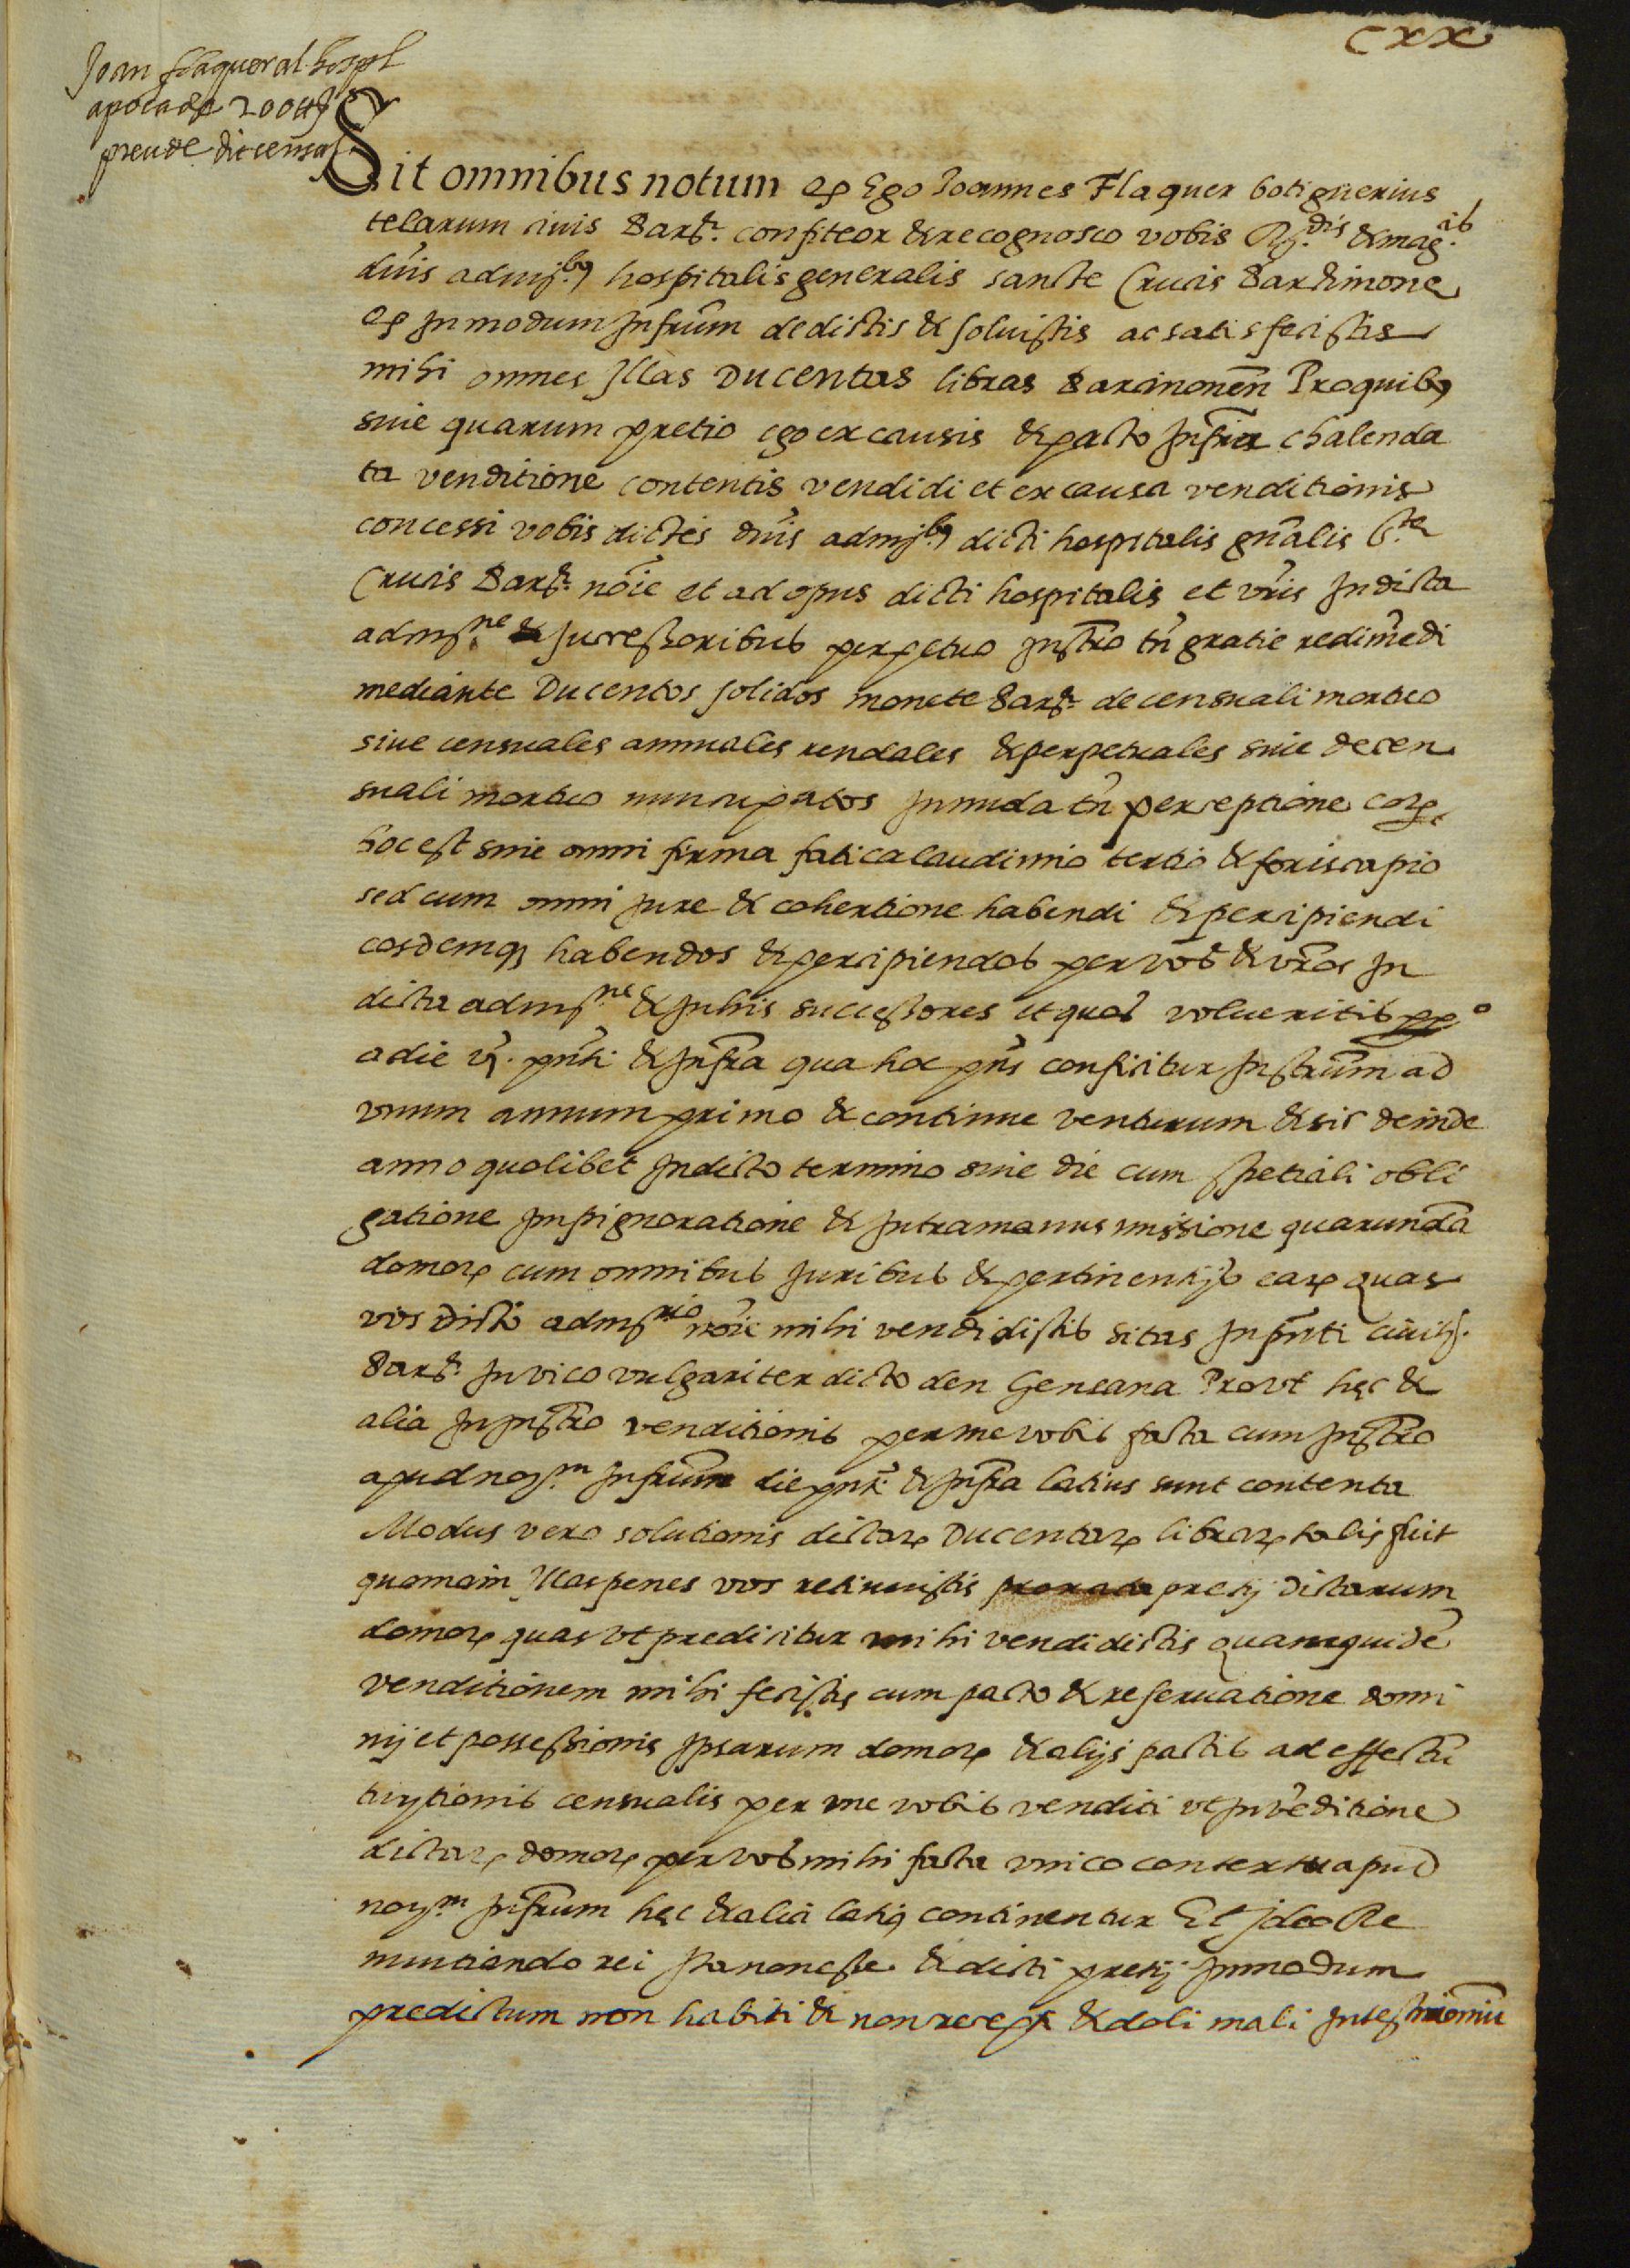 CXX
Joan flaquer al hospl
apoca de 200 ₶
preu de dit censal
Sit omnibus notum q Ego Ioannes Flaquer botiguerius
telarum ciuis Barñ. confiteor & recognosco vobis Rdis & mag.cis
dnis admj.bus hospitalis generalis sancte Crucis Barcinone
q In modum Infrum dedistis & soluistis ac satisfecistis
mihi omnes Illas Ducentas libras Barcinonen Pro quibus
siue quarum pretio ego ex causis & pacto Infra chalenda
ta venditione contentis vendidi et ex causa venditionis
concessi vobis dictis dnis admj.bus dicti hospitalis gnalis S.te
Crucis Barñ. noie et ad opus dicti hospitalis et vris In dicta
admj.ne & successoribus perpetuo Instro tn gratie redimedi
mediante Ducentos solidos monete Barñ. de censuali mortuo
siue censuales annuales rendales & perpetuales siue de cen
suali mortuo nuncupatos In nuda tn perceptione cor.
hoc est sine omni firma faticalaudimio tertio & foriscapio
sed cum omni Iure & cohertione habendi & percipiendi
eosdemq habendos & percipiendos per vos & vros In
dicta admj.ne & In his successores et quos volueritis pp.o
a die v. pnti & Infra qua hoc pns conficitur Instrum ad
vnum annum primo & continue venturum & sic deinde
anno quolibet In dicto termino siue die cum spetiali obli
gatione Impignoratione & Intramanus missione quarunda
domor cum omnibus Iuribus & pertinentijs ear quas
vos dicto admj.rio noie mihi vendidistis sitas In pnti ciuit.
Barñ. In vico vulgariter dicto den Gensana Prout hęc &
alia In Instro venditionis per me vobis facta cum Instro
apud noj.m Infrum die pnt. & Infra latius sunt contenta
Modus vero solutionis dictar Ducentar librar talis fuit
quoniam Illas penes vos retinuistis pretij dictarum
domor quas vt predicitur mihi vendidistis quamquide
venditionem mihi fecistis cum pacto & reseruatione domi
nij et possessionis Ipsarum domor & alijs pactis ad effectu
censualis per me vobis venditi vt In veditione
dictar domor per vos mihi facta vnico contextu apud
noj.m Infrum hęc & alia latiq continentur Et Ideo Re
nuntiando rei Ita non esse & dicti pretij In modum
predictum non habiti & non recepti & doli mali In testimoniu